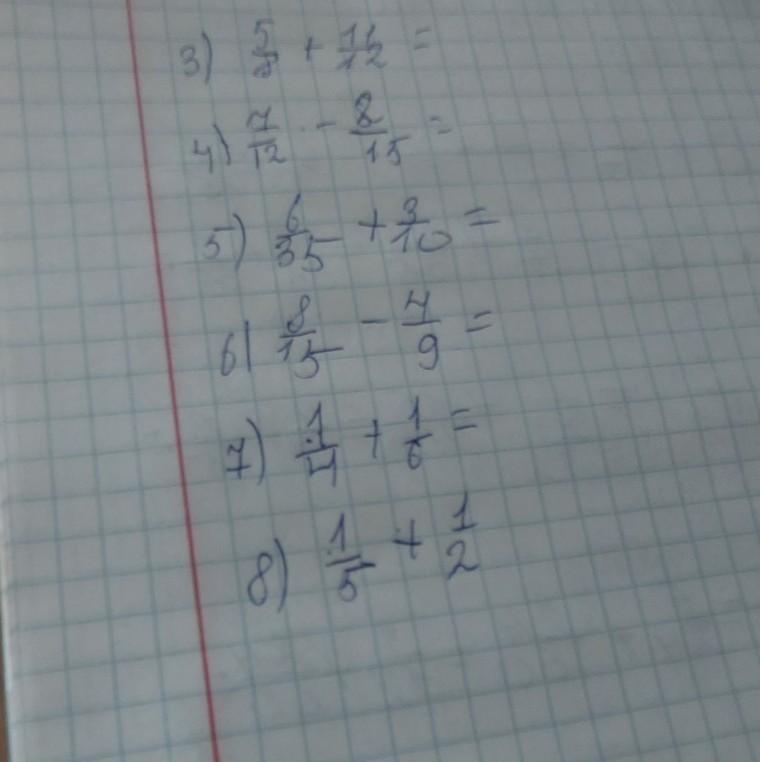 3) 5/8 + 11/12 =
4) 7/12 - 8/15 =
5) 6/35 + 3/10 =
6) 8/15 - 4/9 =
7) 1/4 + 1/6 =
8) 1/5 + 1/2